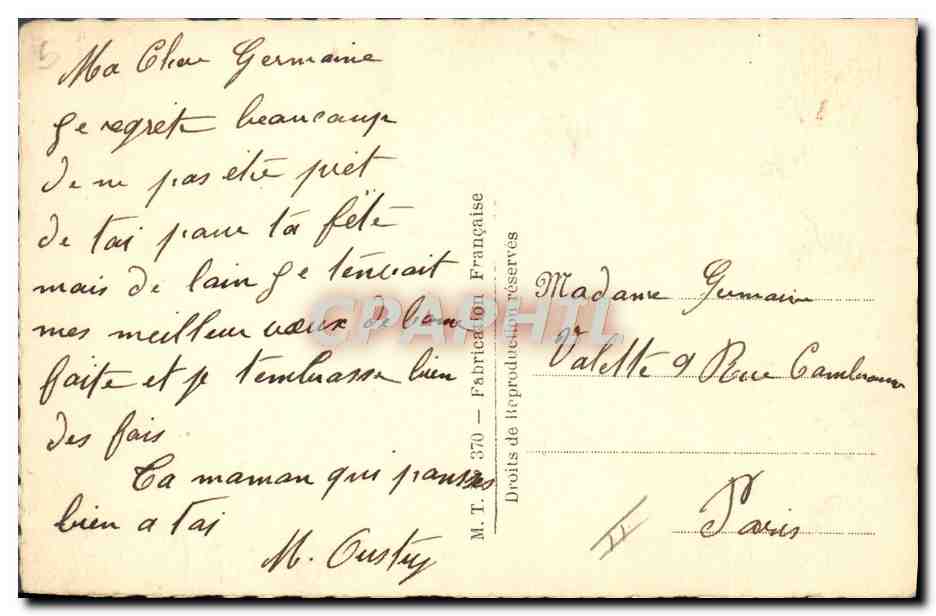 Ma Cher Germaine
Je regrete beaucoup
de ne pas etre pret
de toi pour ta fête
mais de loin Je t'envoit
mes meilleur vœux de bone
faite et je t'embrasse bien
des fois
Ta maman qui panses
bien a toi
M. Oustry
M. T. 370 — Fabrication Française
Droits de Reproduction réservés
CPAPHIL
Madame Germaine
Valette 9 Rue Cambronne
Paris
II